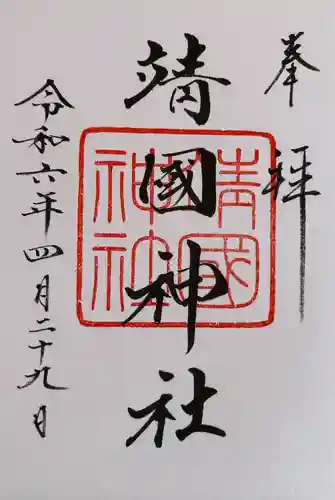 奉拝
靖國神社
靖國神社
令和六年四月二十九日